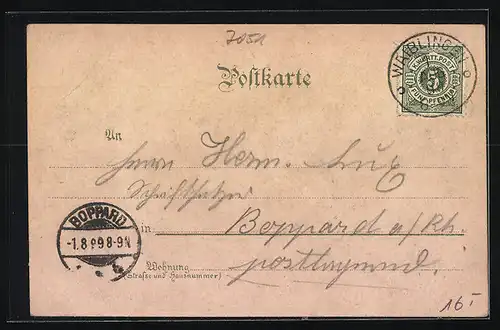 7051
WAIBLINGEN
K. WÜRTT. POST
5
FÜNF PFENNIG
Postkarte
An
Herrn Herm. Lutz
Schriftsetzer
in Boppard a/Rh.
postlagernd.
Wohnung
(Strasse und Hausnummer)
BOPPARD
-1.8 99 8-9V
16.-